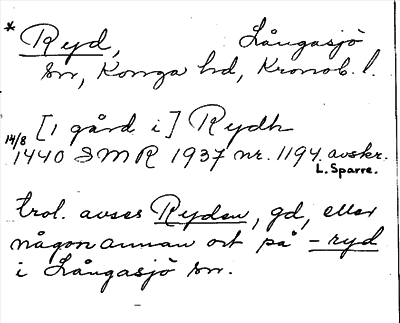 * Ryd, Långasjö
sn, Konga hd, Kronob. l.
[1 gård i] Rydh
14/8 1440 SMR 1937 nr. 1194. avskr.
L. Sparre.
trol. avses Ryden, gd, eller
någon annan ort på -ryd
i Långasjö sn.